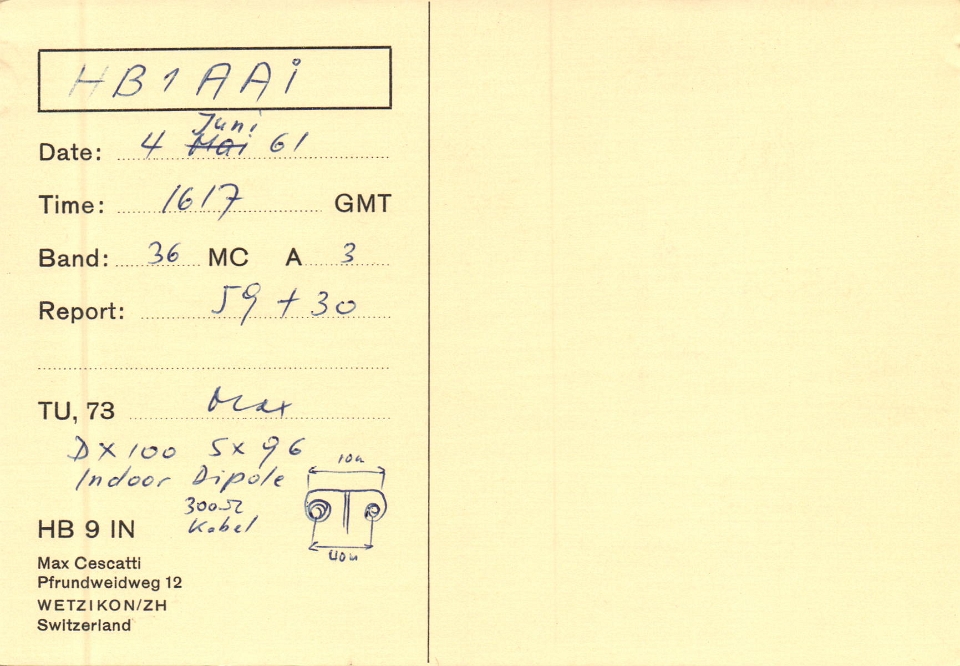 HB1AAi
Juni
Date: 4 Mai 61
Time: 1617 GMT
Band: 36 MC A 3
Report: 59 + 30
TU, 73 Max
DX100 SX96
Indoor Dipole
10m
300Ω
Kabel
40m
HB 9 IN
Max Cescatti
Pfrundweidweg 12
WETZIKON/ZH
Switzerland